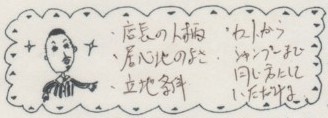 ・店長の人柄
・居心地のよさ
・立地条件
・カットから
シャンプーまで
同じ方にして
いただける